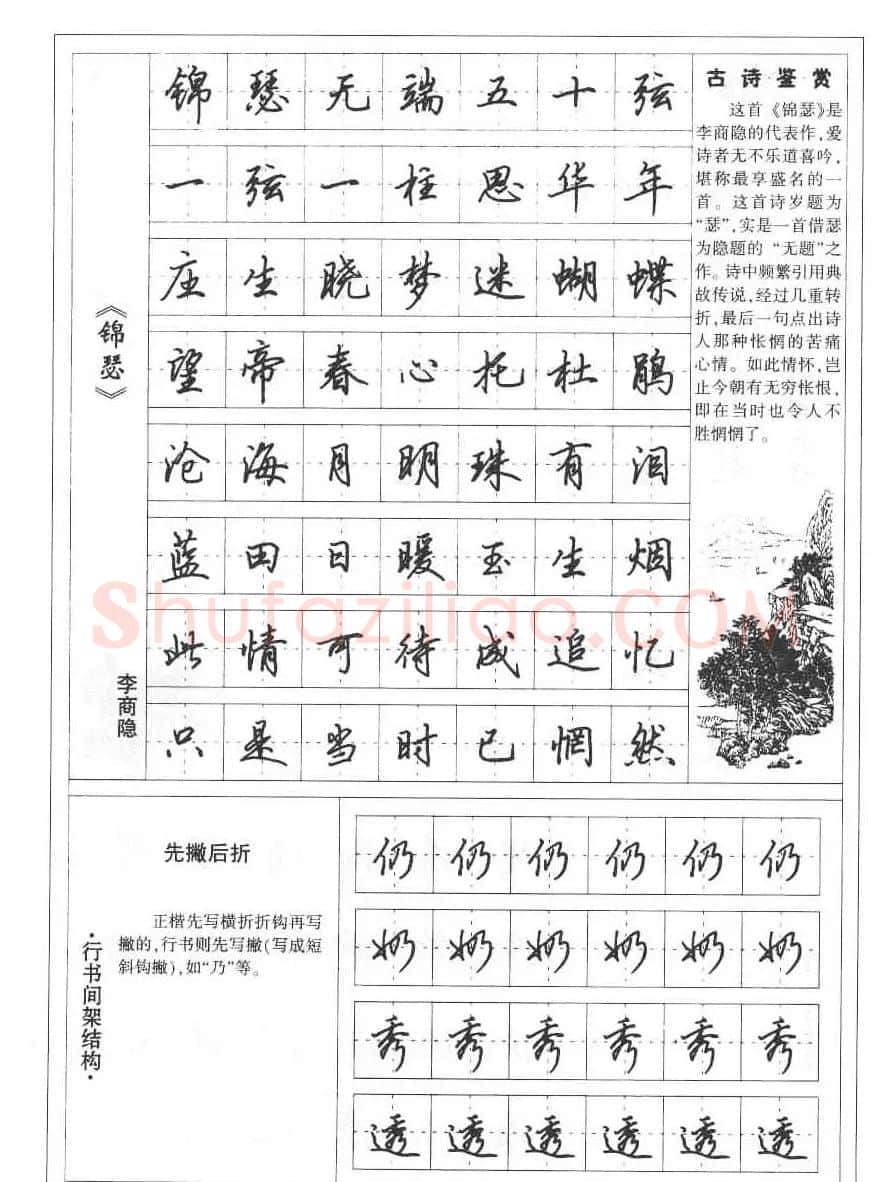 《锦瑟》
李商隐
锦瑟无端五十弦
一弦一柱思华年
庄生晓梦迷蝴蝶
望帝春心托杜鹃
沧海月明珠有泪
蓝田日暖玉生烟
此情可待成追忆
只是当时已惘然
古诗鉴赏
这首《锦瑟》是
李商隐的代表作,爱
诗者无不乐道喜吟,
堪称最享盛名的一
首。这首诗岁题为
“瑟”,实是一首借瑟
为隐题的“无题”之
作。诗中频繁引用典
故传说,经过几重转
折,最后一句点出诗
人那种怅惘的苦痛
心情。如此情怀,岂
止今朝有无穷怅恨,
即在当时也令人不
胜惘惘了。
Shufaziliao.COM
·行书间架结构·
先撇后折
正楷先写横折折钩再写
撇的,行书则先写撇(写成短
斜钩撇),如“乃”等。
仍仍仍仍仍仍
奶奶奶奶奶奶
秀秀秀秀秀秀
透透透透透透